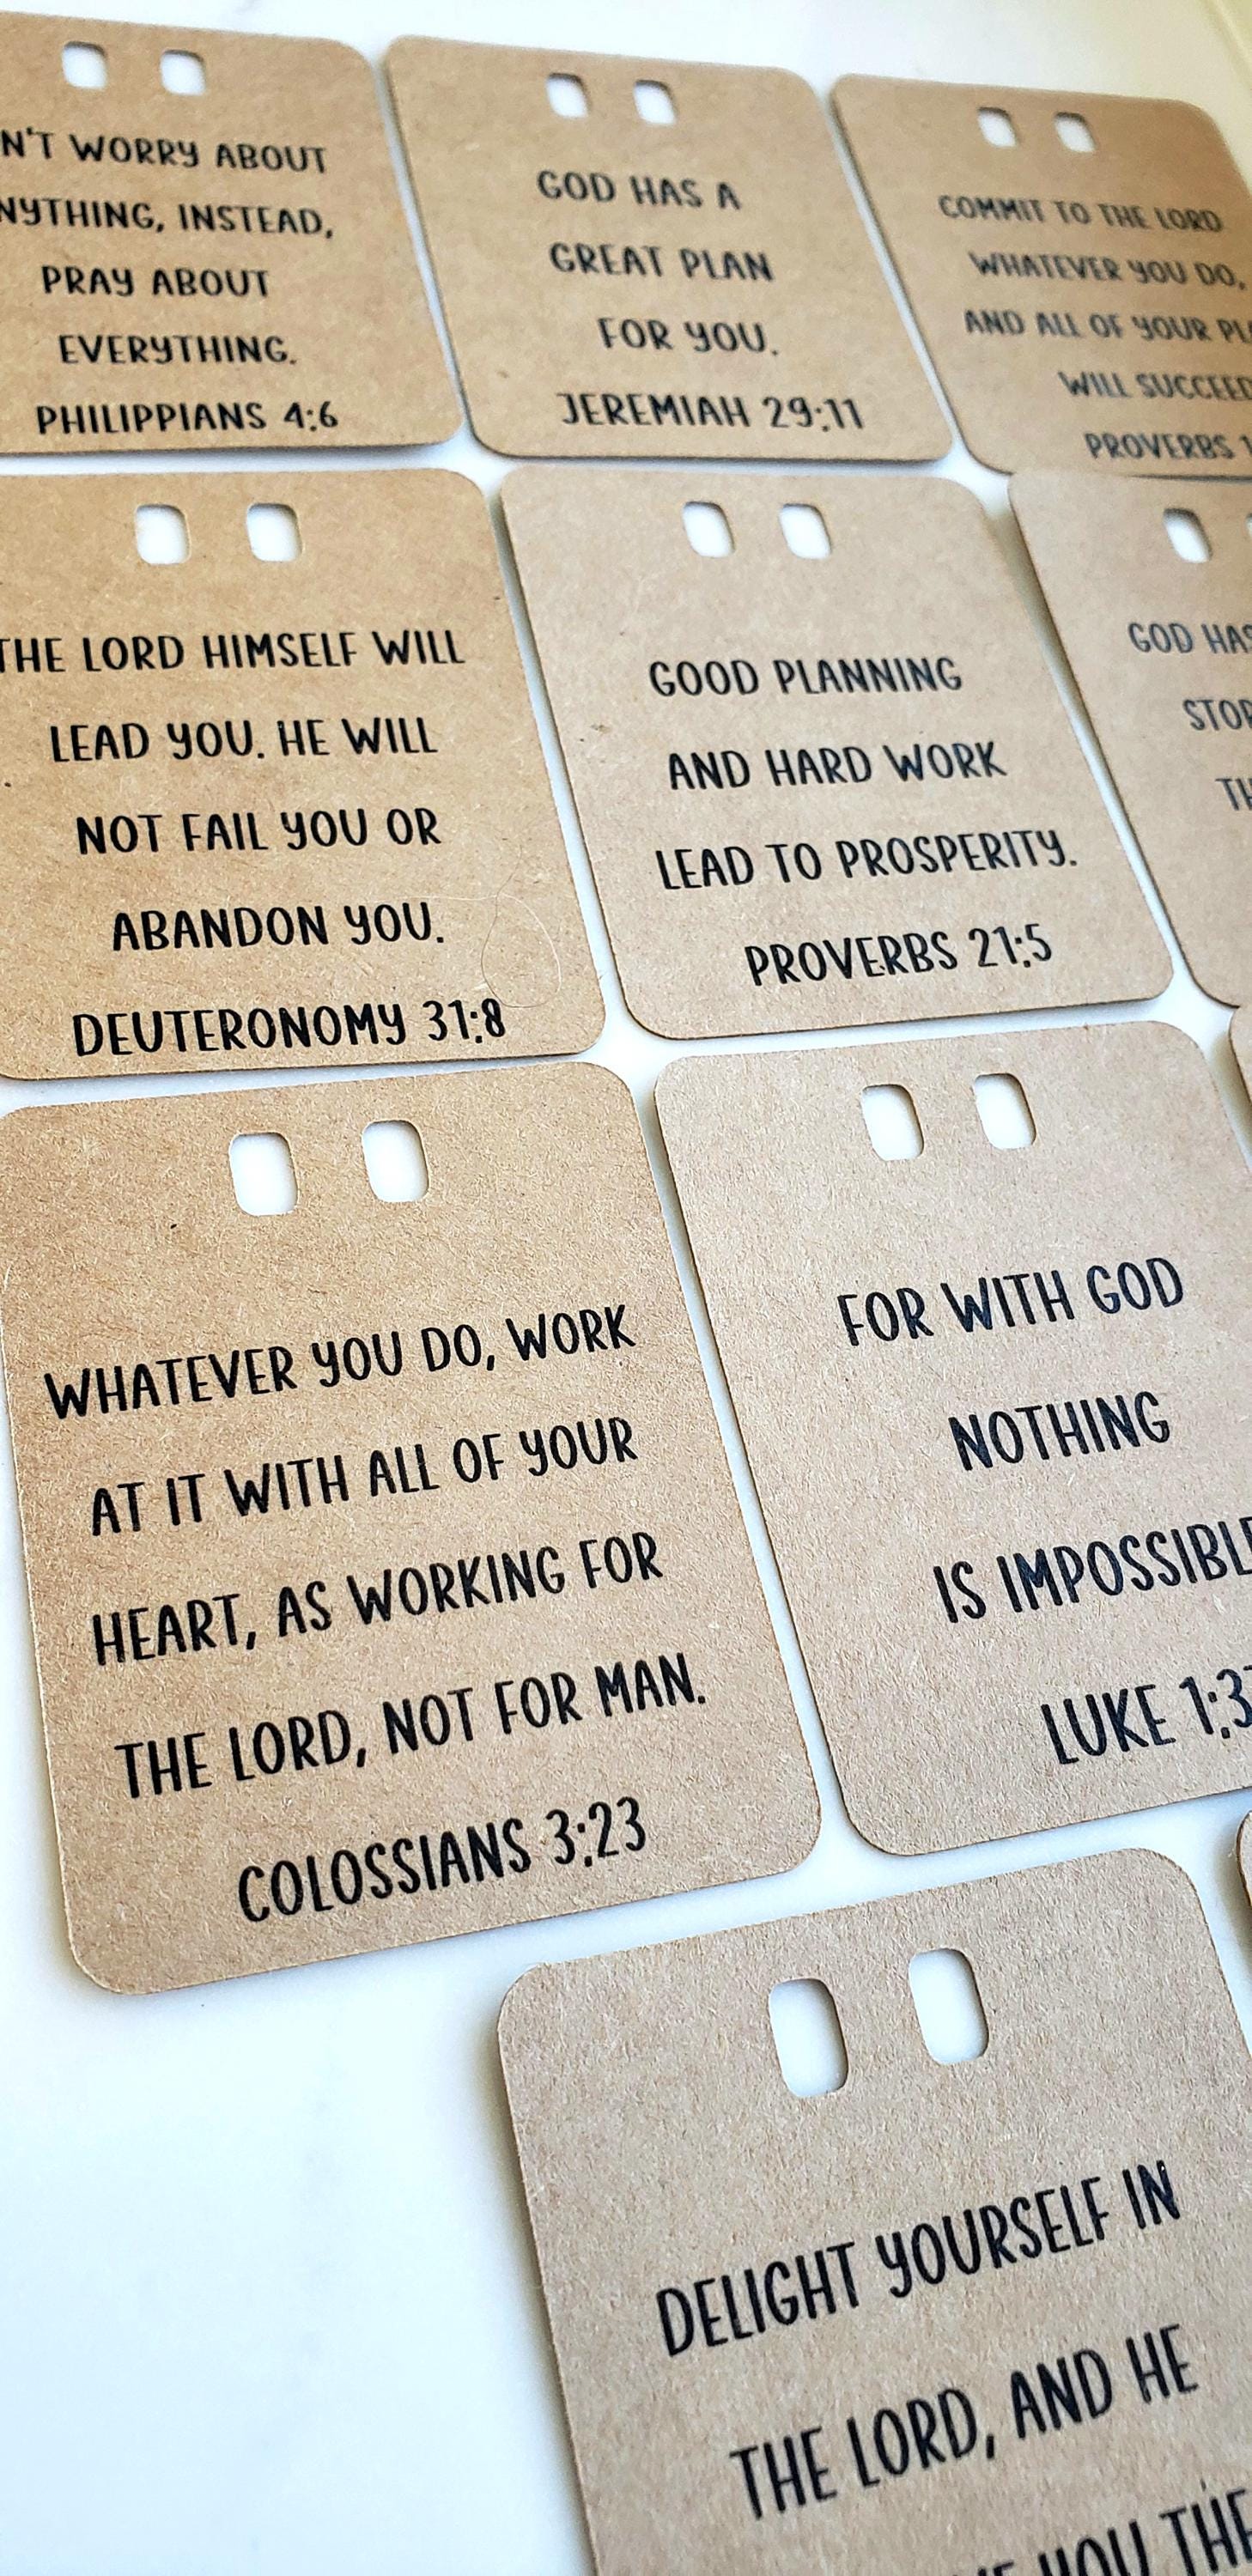 N'T WORRY ABOUT
NYTHING, INSTEAD,
PRAY ABOUT
EVERYTHING.
PHILIPPIANS 4:6
GOD HAS A
GREAT PLAN
FOR YOU.
JEREMIAH 29:11
COMMIT TO THE LORD
WHATEVER YOU DO,
AND ALL OF YOUR
WILL SUCCEED
PROVERBS
THE LORD HIMSELF WILL
LEAD YOU. HE WILL
NOT FAIL YOU OR
ABANDON YOU.
DEUTERONOMY 31:8
GOOD PLANNING
AND HARD WORK
LEAD TO PROSPERITY.
PROVERBS 21:5
GOD HAS
WHATEVER YOU DO, WORK
AT IT WITH ALL OF YOUR
HEART, AS WORKING FOR
THE LORD, NOT FOR MAN.
COLOSSIANS 3:23
FOR WITH GOD
NOTHING
IS IMPOSSIBLE
LUKE 1:37
DELIGHT YOURSELF IN
THE LORD, AND HE
YOU THE